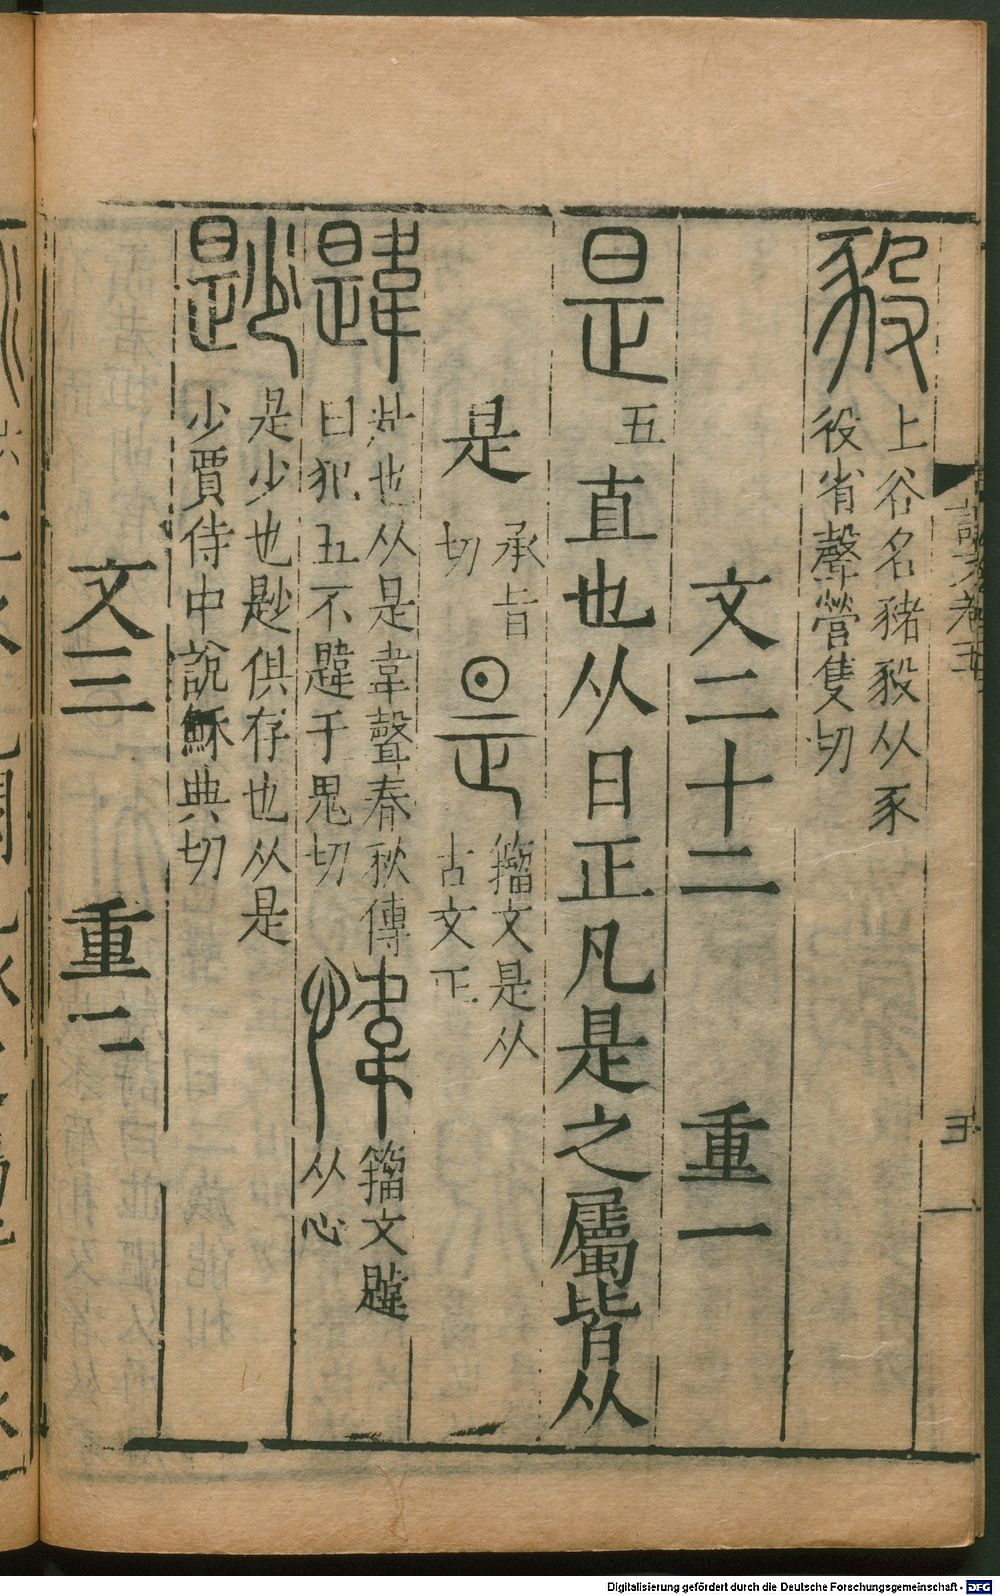 豛
上谷名豬豛从豕
役省聲營隻切
文二十二 重一
是 五 直也从日正凡是之屬皆从
是 承旨
切
是 籀文是从
古文正
韙
也从是韋聲春秋傳
曰犯五不韙于鬼切
籀文韙
从心
尟
是少也尟俱存也从是
少賈侍中說穌典切
文三 重二
Digitalisierung gefördert durch die Deutsche Forschungsgemeinschaft - DFG